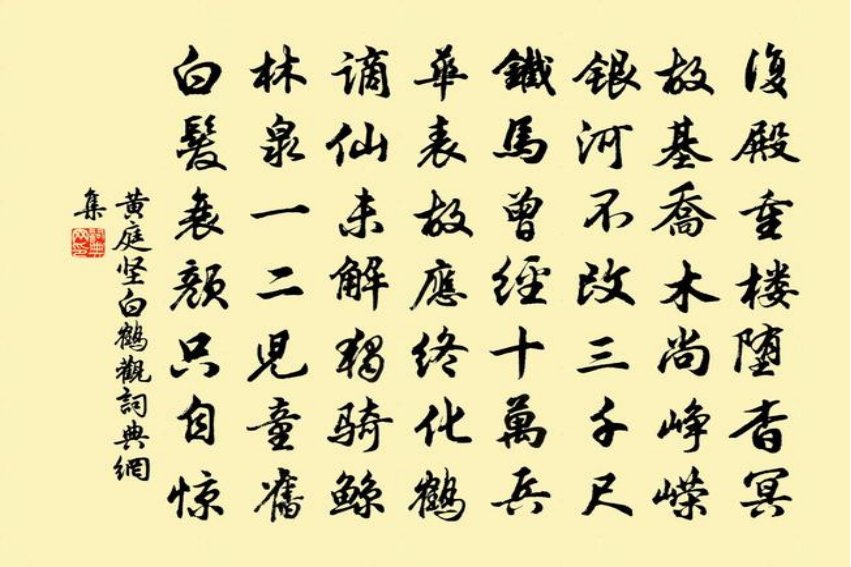 復殿重楼堕杳冥
故基喬木尚峥嵘
银河不改三千尺
鐵馬曾經十萬兵
華表故應终化鶴
谪仙未解獨骑鲸
林泉一二兒童舊
白髮衰颜只自惊
黄庭坚白鶴觀詞典網
集